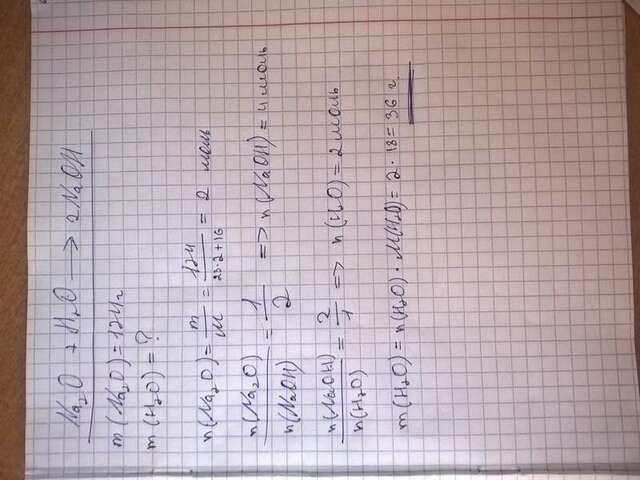 Na₂O + H₂O → 2NaOH
m(Na₂O) = 124г
m(H₂O) = ?
n(Na₂O) = m/M = 124/23·2+16 = 2 моль
n(Na₂O)/n(NaOH) = 1/2 => n(NaOH) = 4 моль
n(NaOH)/n(H₂O) = 2/1 => n(H₂O) = 2 моль
m(H₂O) = n(H₂O) · M(H₂O) = 2 · 18 = 36 г